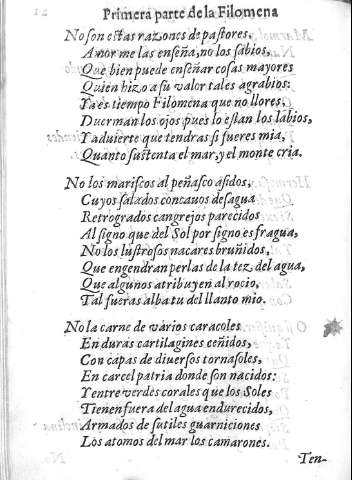 Primera parte de la Filomena
No son estas razones de pastores,
Amor me las enseña, no los sabios,
Que bien puede enseñar cosas mayores
Quien hizo a su valor tales agrabios:
Ya es tiempo Filomena que no llores,
Duerman los ojos pues lo estan los labios,
Y aduierte que tendras si fueres mia,
Quanto sustenta el mar, y el monte cria.
No los mariscos al peñasco asidos,
Cuyos salados concauos desagua
Retrogrados cangrejos parecidos
Al signo que del Sol por signo es fragua,
No los lustrosos nacares bruñidos,
Que engendran perlas de la tez del agua,
Que algunos atribuyen al rocio,
Tal fueras alba tu del llanto mio.
No la carne de varios caracoles
En duras cartilagines ceñidos,
Con capas de diuersos tornasoles,
En carcel patria donde son nacidos:
Y entre verdes corales que los Soles
Tienen fuera del agua endurecidos,
Armados de sutiles guarniciones
Los atomos del mar los camarones.
Ten-